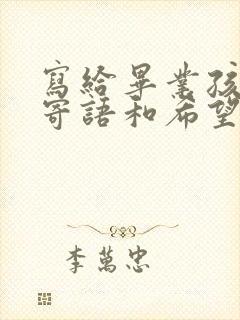 寫給畢業孩
寄語和希望
李萬忠